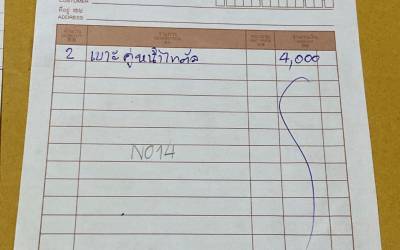 CUSTOMER
ที่อยู่
ADDRESS
จำนวน รายการ จำนวนเงิน
2 เบาะคู่หน้าไททัล 4,000
NO14